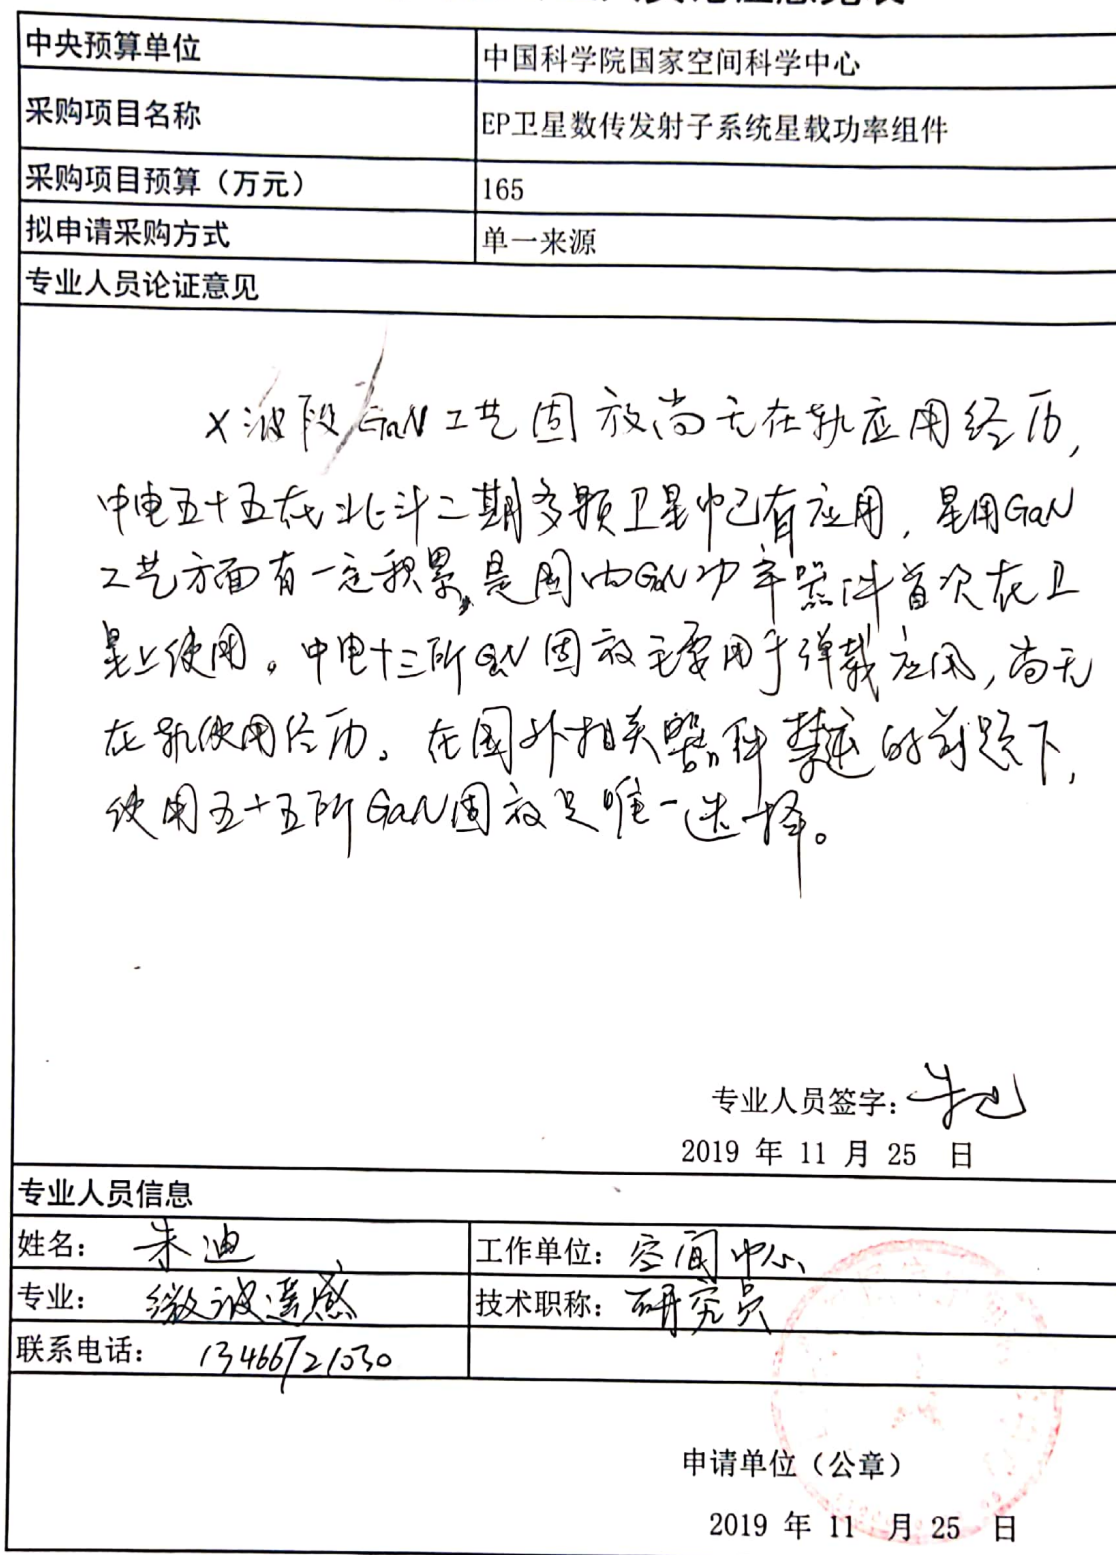 中央预算单位 中国科学院国家空间科学中心
采购项目名称 EP卫星数传发射子系统星载功率组件
采购项目预算（万元） 165
拟申请采购方式 单一来源
专业人员论证意见
X波段GaN工艺固放尚无在轨应用经历，
中电五十五在北斗二期多颗卫星中已有应用，星用GaN
工艺方面有一定积累，是国内GaN功率器件首次在卫
星上使用。中电十三所GaN固放主要用于弹载应用，尚无
在轨使用经历。在国外相关器件禁运的前题下，
使用五十五所GaN固放是唯一选择。
专业人员签字：朱迪
2019 年 11 月 25 日
专业人员信息
姓名： 朱迪 工作单位： 空间中心
专业： 微波遥感 技术职称： 研究员
联系电话： 13466721030
申请单位（公章）
2019 年 11 月 25 日